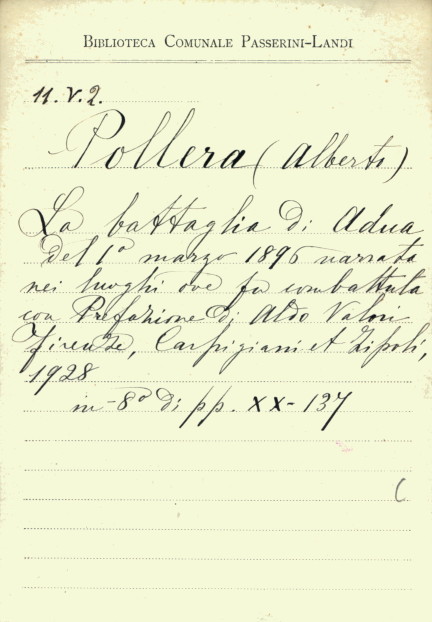 BIBLIOTECA COMUNALE PASSERINI-LANDI
11.V.2.
Pollera (Alberto)
La battaglia di Adua
del 1º marzo 1896 narrata
nei luoghi ove fu combattuta
con Prefazione di Aldo Valori
Firenze, Carpigiani et Zipoli,
1928
in-8º di pp. XX-137
(